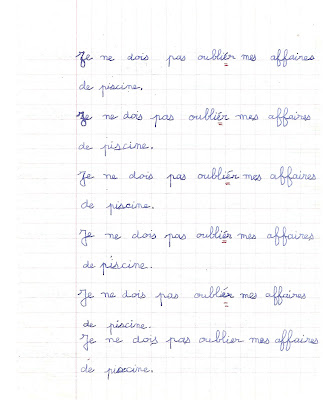 Je ne dois pas oubliér mes affaires
de piscine.
Je ne dois pas oubliér mes affaires
de piscine.
Je ne dois pas oubliér mes affaires
de piscine.
Je ne dois pas oubliér mes affaires
de piscine.
Je ne dois pas oubliér mes affaires
de piscine.
Je ne dois pas oublier mes affaires
de piscine.